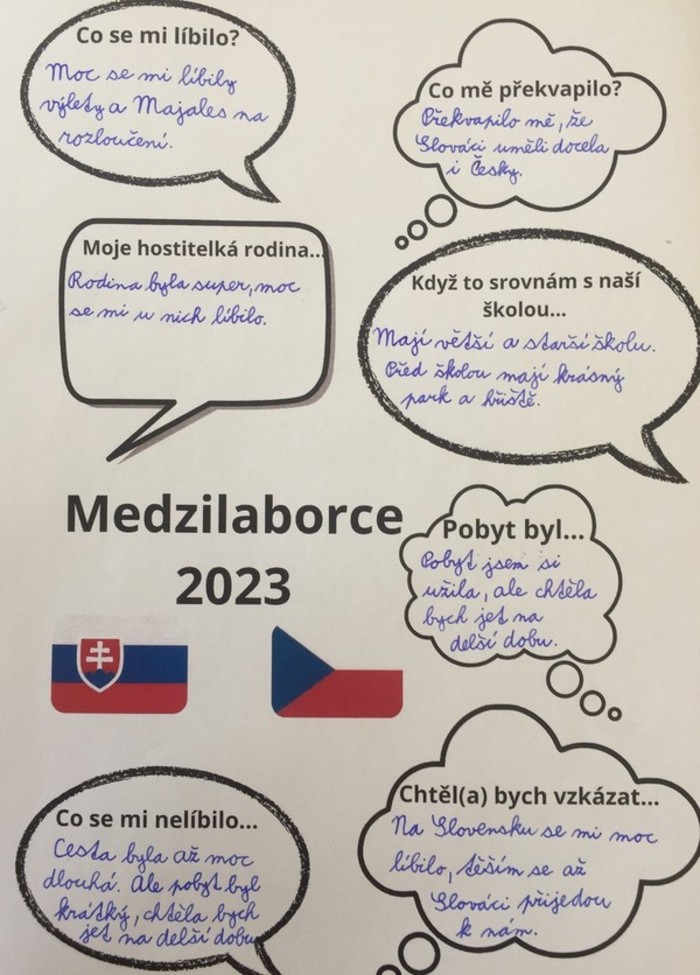 Co se mi líbilo?
Moc se mi líbily
výlety a Majales na
rozloučení.
Co mě překvapilo?
Překvapilo mě, že
Slováci uměli docela
i Česky.
Moje hostitelká rodina...
Rodina byla super, moc
se mi u nich líbilo.
Když to srovnám s naší
školou...
Mají větší a starší školu.
Před školou mají krásný
park a hřiště.
Medzilaborce
2023
Pobyt byl...
Pobyt jsem si
užila, ale chtěla
bych jet na
delší dobu.
Co se mi nelíbilo...
Cesta byla až moc
dlouhá. Ale pobyt byl
krátký, chtěla bych
jet na delší dobu
Chtěl(a) bych vzkázat...
Na Slovensku se mi moc
líbilo, těším se až
Slováci přijedou
k nám.